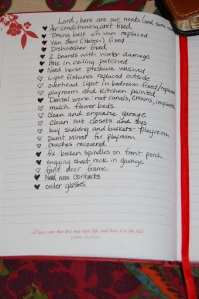 Lord, here are our needs (and some
Air conditioning unit fixed
Timing belt in van replaced
Van door (Clinton's) fixed
Dishwasher fixed
2 boards with water damage
tile in ceiling patched
Need home pressure washed
Light fixtures replaced outside
overhead light in bedroom fixed/replaced
playroom and kitchen painted
Dental work: root canals, crowns, implants
mulch flower beds
Clean and organize garage
Clean out closets and toys
buy shelving and buckets - playroom
Paint mirror for playroom
couches recovered
fix broken spindles on front porch
sagging sheet rock in garage
front door frame
Need new contacts
order glasses